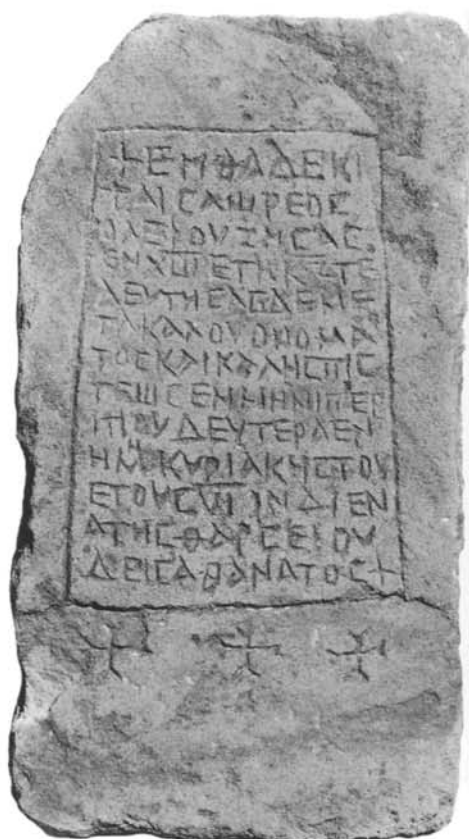 +ΕΜΘΑΔΕΚΙ
ΤΑΙϹΑѠΡΕΟϹ
ΟΛΕΞΙΟΥΖΗϹΑϹ
ΕΝΑѠΡΕΤΗΚΖΤΕ
ΛΕΥΤΗϹΑϹΔΕΜΕ
ΤΑΚΑΛΟΥΟΝΟΜΑ
ΤΟϹΚΑΙΚΑΛΗϹΠΙϹ
ΤΕѠϹΕΜΜΗΝΙΠΕΡ
ΙΤΙΟΥΔΕΥΤΕΡΑΕΝ
ΗΜΚΥΡΙΑΚΗϹΤΟΥ
ΕΤΟΥϹΥΠΙΝΔΙΕΝ
ΑΤΗϹΘΑΡϹΕΙΟΥ
ΔΕΙϹΑΘΑΝΑΤΟϹ+